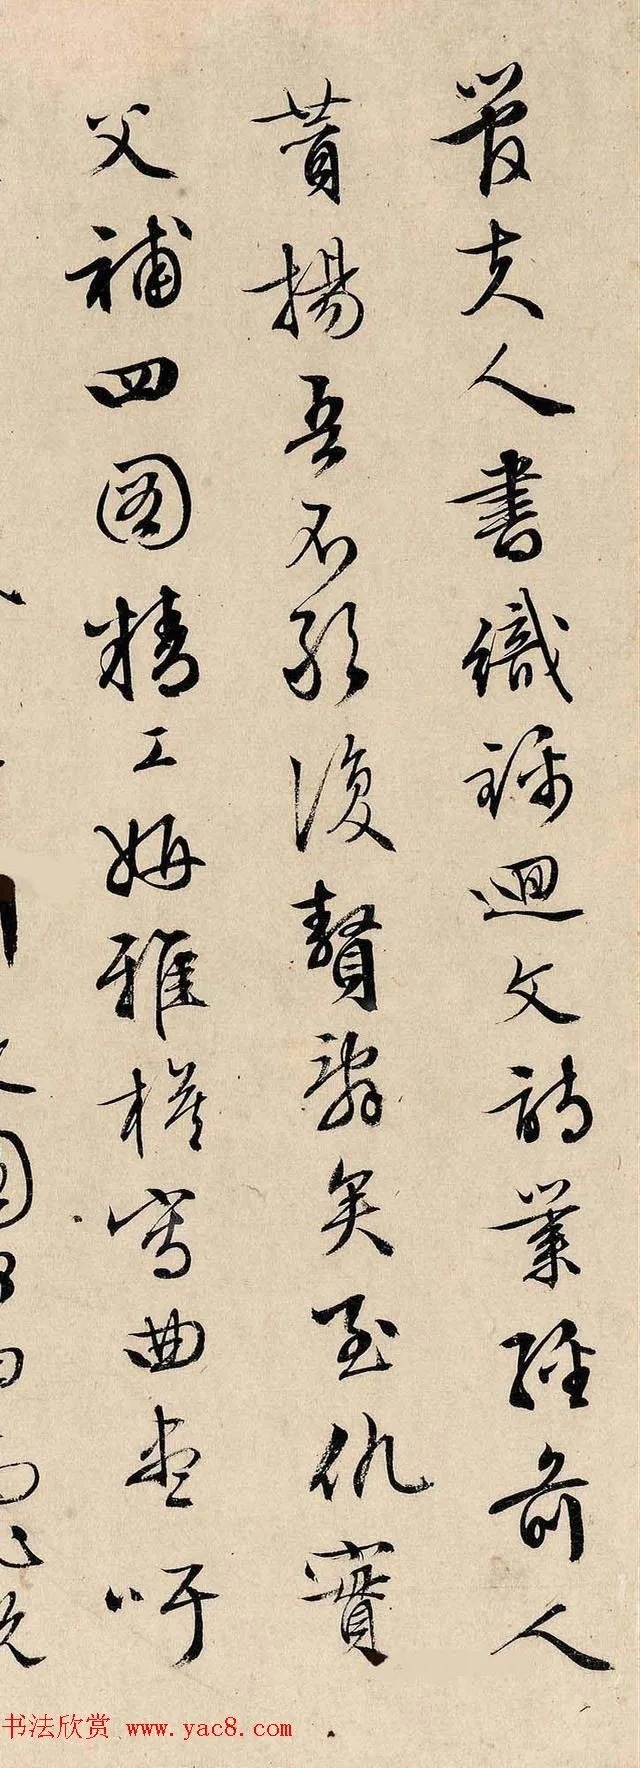 管夫人書織錦迴文詩業經前人
贊揚吾不能復贅辭矣至仇實
父補四圖精工妍雅模寫曲盡吁
书法欣赏 www.yac8.com